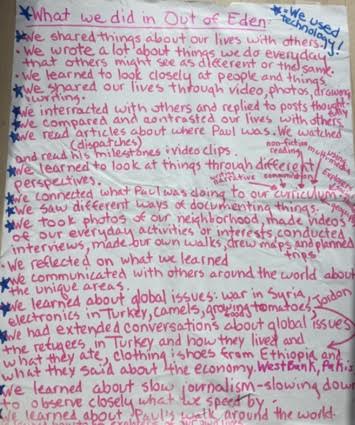 What we did in Out of Eden:
★=We used technology!
We shared things about our lives with others.
We wrote a lot about things we do everyday
that others might see as different or the same.
We learned to look closely at people and things
We shared our lives through video, photos, drawing
writing.
We interacted with others and replied to posts
We compared and contrasted our lives with others
We read articles about where Paul was. We watched
(dispatches)
and read his milestones & video clips.
non-fiction
reading
We learned to look at things through different
perspectives.
We connected what Paul was doing to our curriculum
We saw different ways of documenting things
We took photos of our neighborhood, made videos
of our everyday activities or interests, conducted
interviews, made our own walks, drew maps and planned
trips
We reflected on what we learned
We communicated with others around the world about
the unique areas.
We learned about global issues: war in Syria, Jordan
electronics in Turkey, camels, growing tomatoes,
food
We had extended conversations about global issues
the refugees in Turkey and how they lived and
what they ate, clothing & shoes from Ethiopia and
what they said about the economy. West Bank,
We learned about slow journalism-slowing down
to observe closely what we speed by.
We learned about Paul's walk around the world.